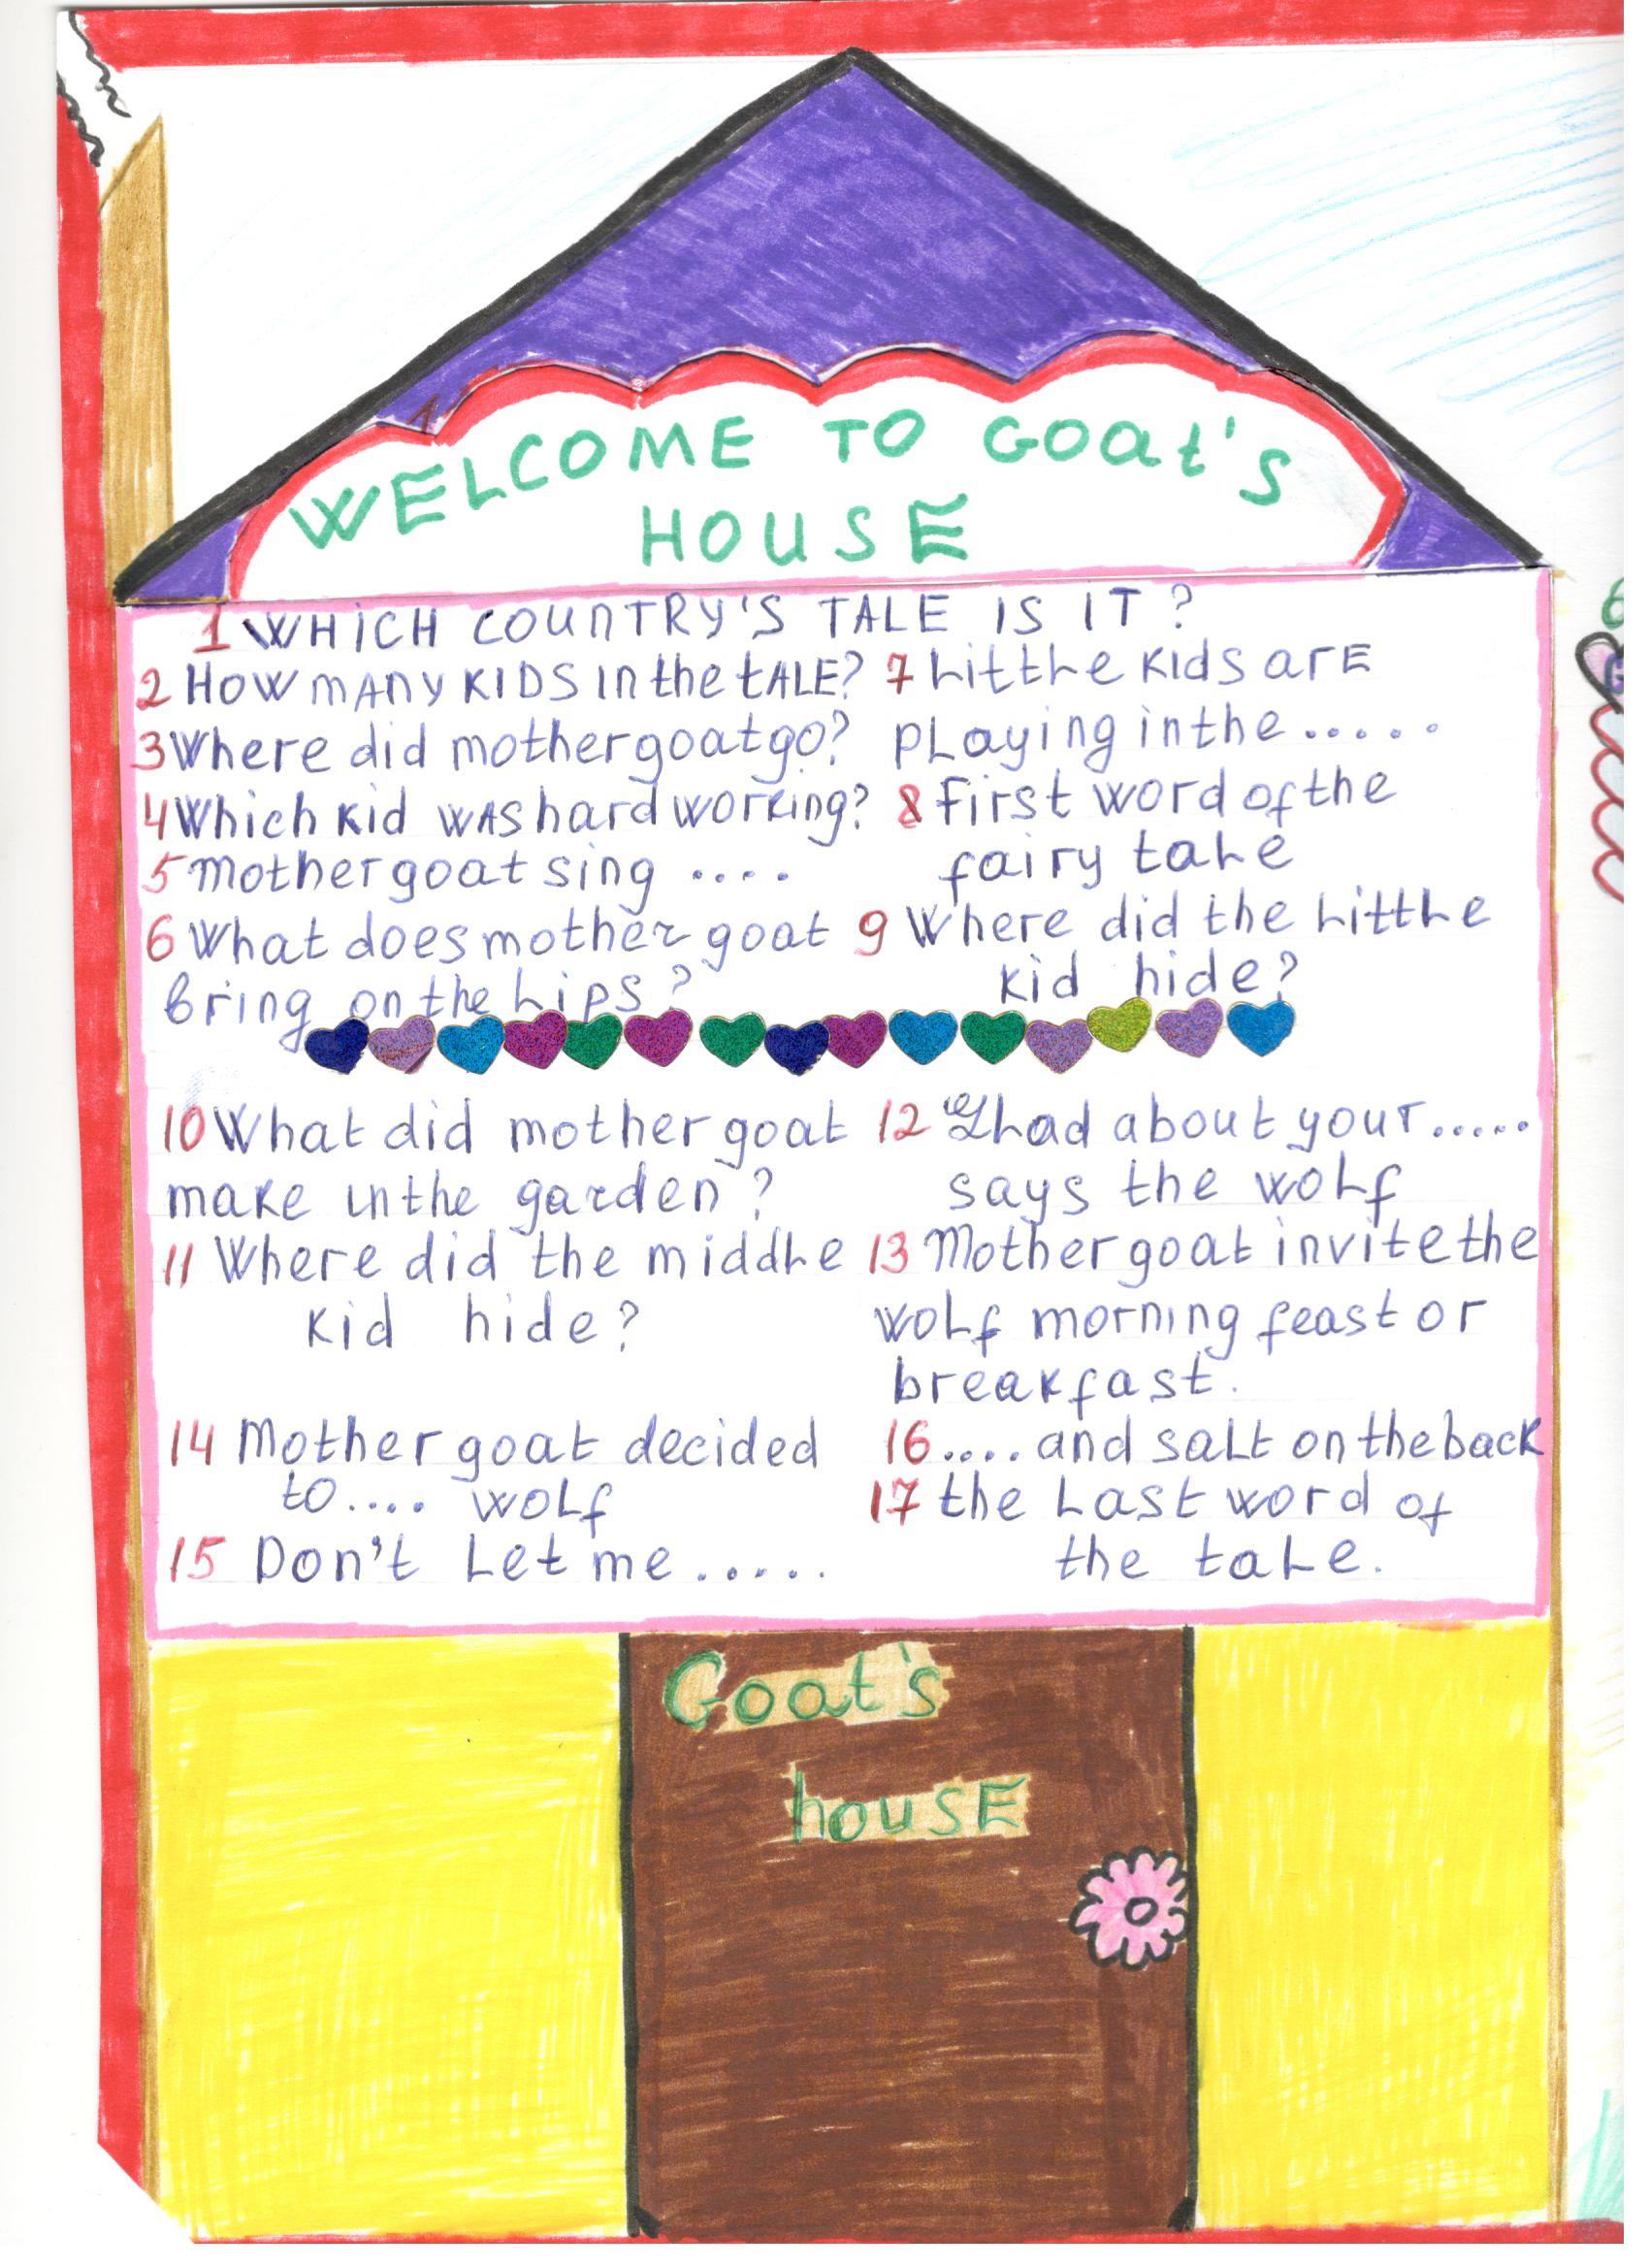 WELCOME TO GOat's
HOUSE
1 WHiCH COUnTRY'S TALE IS IT?
2 HOW mANy KIDS In the tALE?
3 Where did mother goat go?
4 Which Kid wAs hard working?
5 mother goat sing ....
6 What does mother goat
bring on the Lips?
7 Little Kids arE
pLaying in the .....
8 First word of the
fairy taLe
9 Where did the LittLe
kid hide?
10 What did mother goat
make in the garden?
11 Where did the middLe
Kid hide?
12 GLad about your.....
says the woLf
13 Mother goat invite the
woLf morning feast or
breakfast.
14 Mother goat decided
to.... woLf
15 Don't Let me.....
16 .... and saLt on the back
17 the Last word of
the taLe.
Goat's
housE